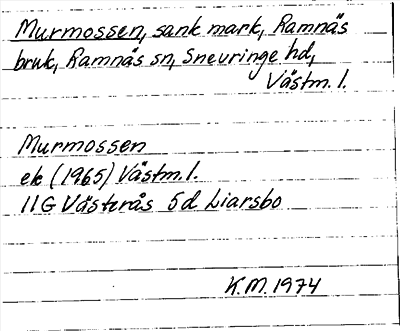 Murmossen, sank mark, Ramnäs
bruk, Ramnäs sn, Snevringe hd,
Västm. l.
Murmossen
ek (1965) Västm. l.
11G Västerås 5d Liarsbo
K.M. 1974